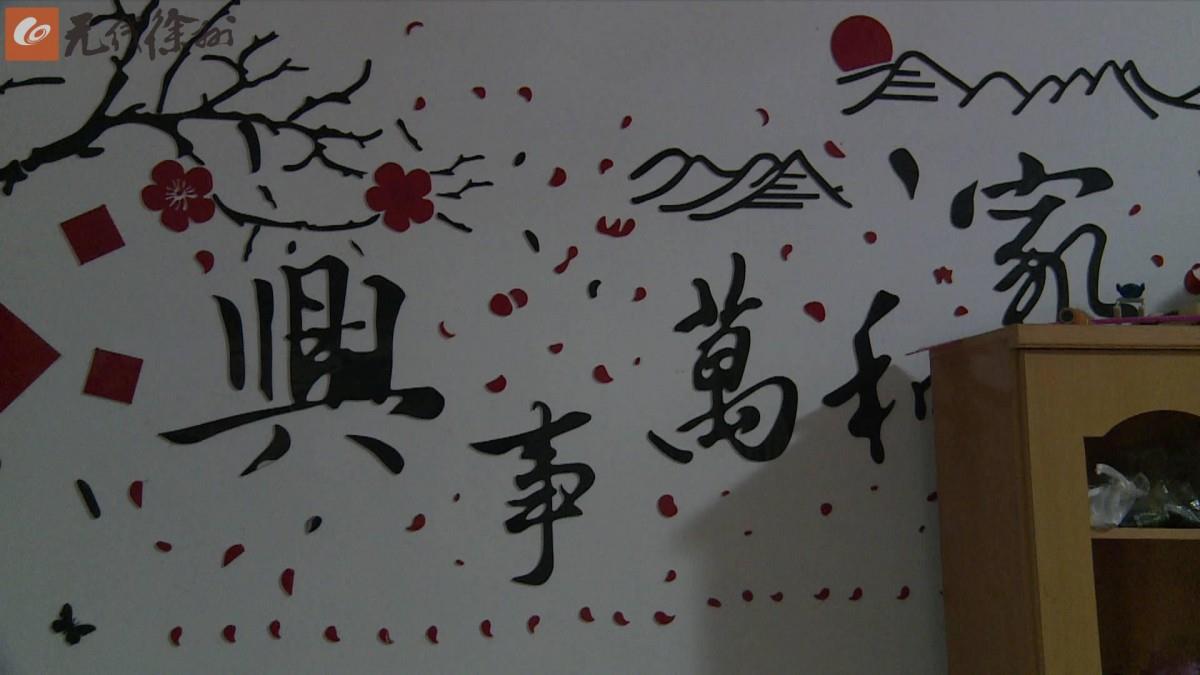 无线徐州
家和萬事興